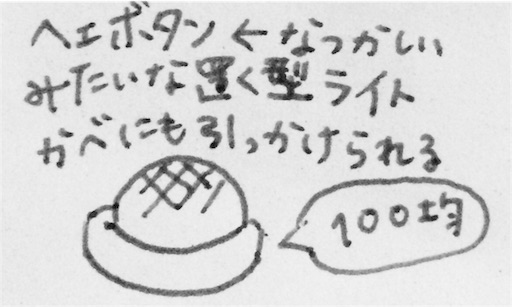 ヘェボタン←なつかしい
みたいな置く型ライト
かべにも引っかけられる
100均